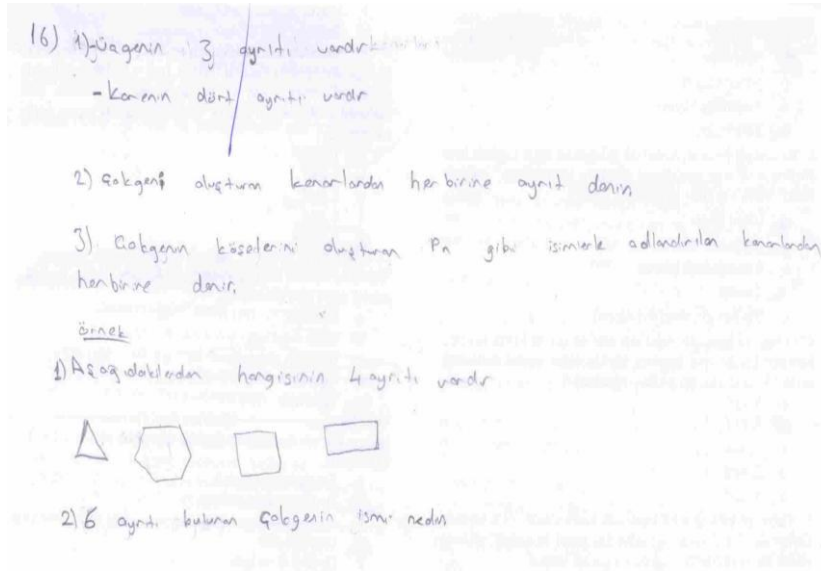 16) 1)-Üçgenin 3 ayrıtı vardır
- Karenin dört ayrıtı vardır
2) Çokgeni oluşturan kenarlardan herbirine ayrıt denir
3) Çokgenin köşelerini oluşturan Pn gibi isimlerle adlandırılan kenarlardan
herbirine denir.
örnek
1) Aşağıdakilerden hangisinin 4 ayrıtı vardır
2) 6 ayrıtı bulunan çokgenin ismi nedir